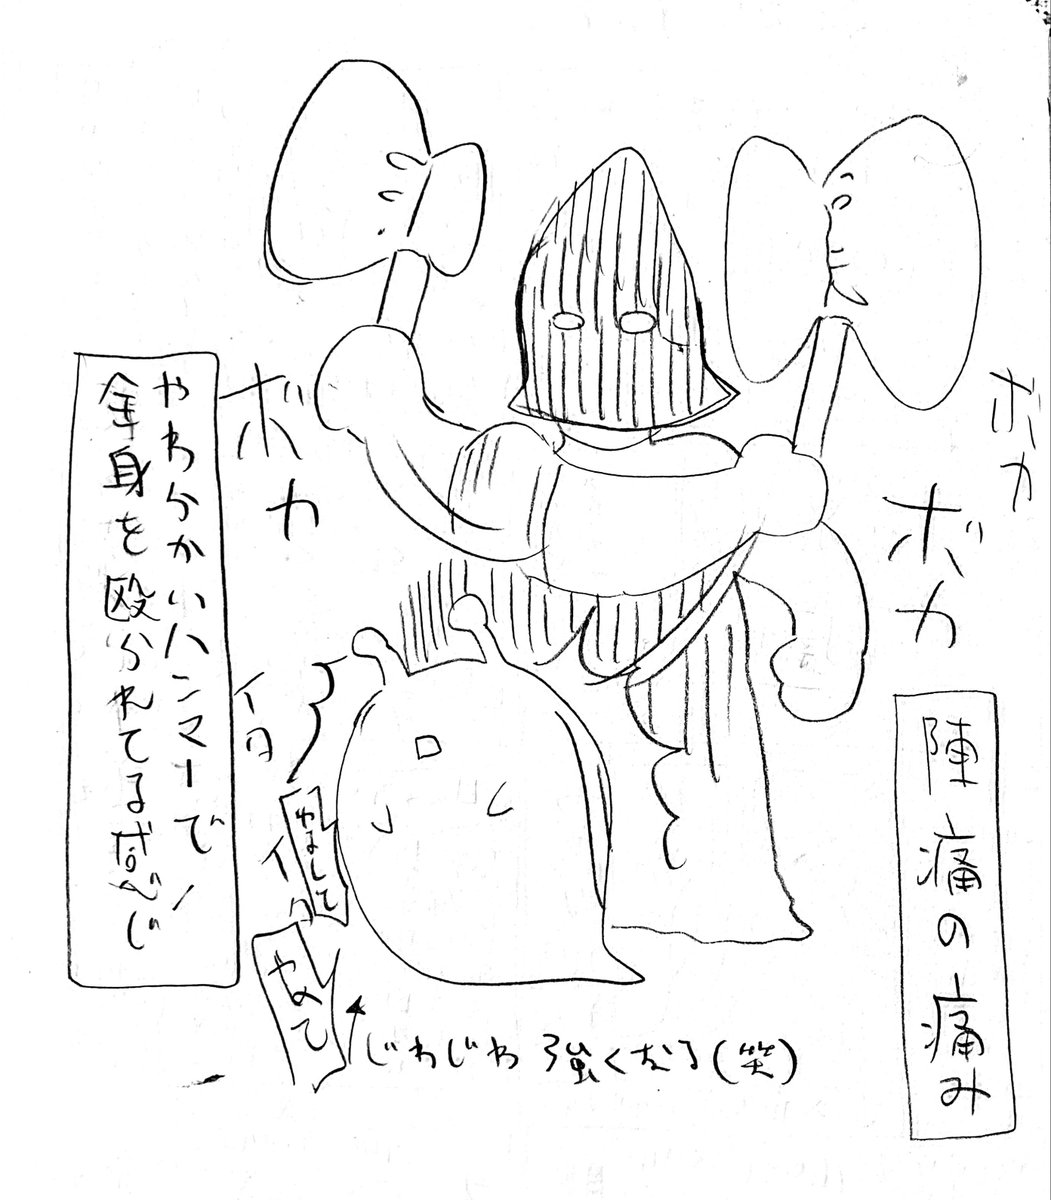 陣痛の痛み
ボカ
ボカ
ボカ
やわらかいハンマーで
全身を殴られてる感じ
イタ
イタ
やめて
じわじわ強くなる(笑)